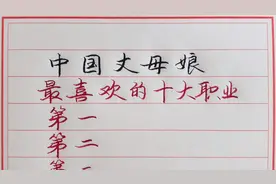 中国丈母娘
最喜欢的十大职业
第一
第二